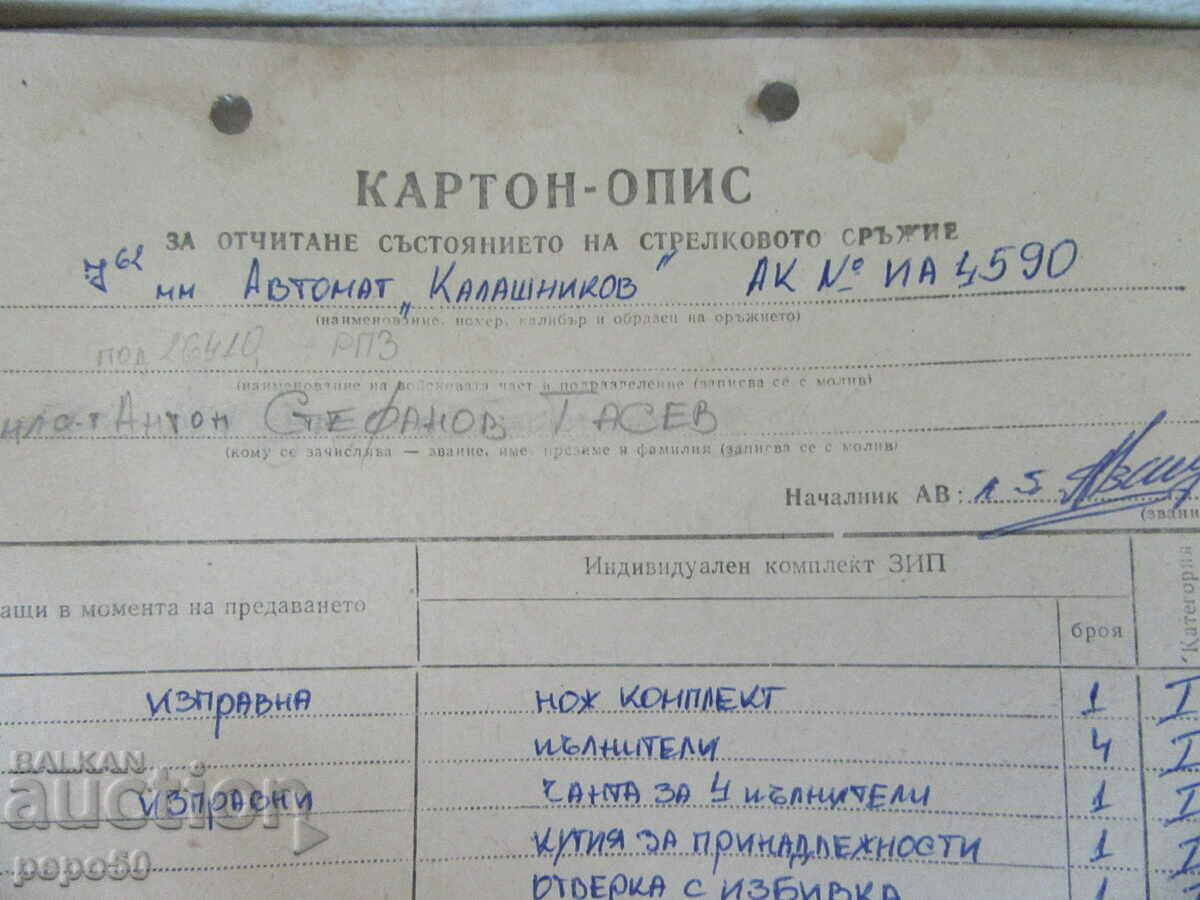 КАРТОН-ОПИС
ЗА ОТЧИТАНЕ СЪСТОЯНИЕТО НА СТРЕЛКОВОТО ОРЪЖИЕ
7⁶² мм Автомат „Калашников" АК № ИА 1590
(наименование, номер, калибър и образец на оръжието)
под 26410 РПЗ
(наименование на войсковата част и подразделение (записва се с молив)
Антон Стефанов Гасев
(кому се зачислява — звание, име, презиме и фамилия (записва се с молив)
Началник АВ:
(звани
ащи в момента на предаването
Индивидуален комплект ЗИП
броя
Категория
ИЗПРАВНА НОЖ КОМПЛЕКТ 1 I
ПЪЛНИТЕЛИ 4 I
ИЗПРАВНИ ЧАНТА ЗА 4 ПЪЛНИТЕЛИ 1 I
КУТИЯ ЗА ПРИНАДЛЕЖНОСТИ 1 I
ОТВЕРКА С ИЗБИВКА 1
BALKAN
auction
pepo50